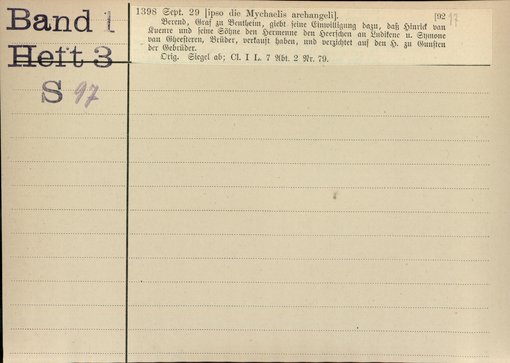 Band 1
Heft 3
S 97
1398 Sept. 29 [ipso die Mychaelis archangeli]. [92 97
Berend, Graf zu Bentheim, giebt seine Einwilligung dazu, daß Hinrick van
Kuenre und seine Söhne den Hermenne den Heerschen an Ludikene u. Symone
van Gheesteren, Brüder, verkauft haben, und verzichtet auf den H. zu Gunsten
der Gebrüder.
Orig. Siegel ab; Cl. I L. 7 Abt. 2 Nr. 79.